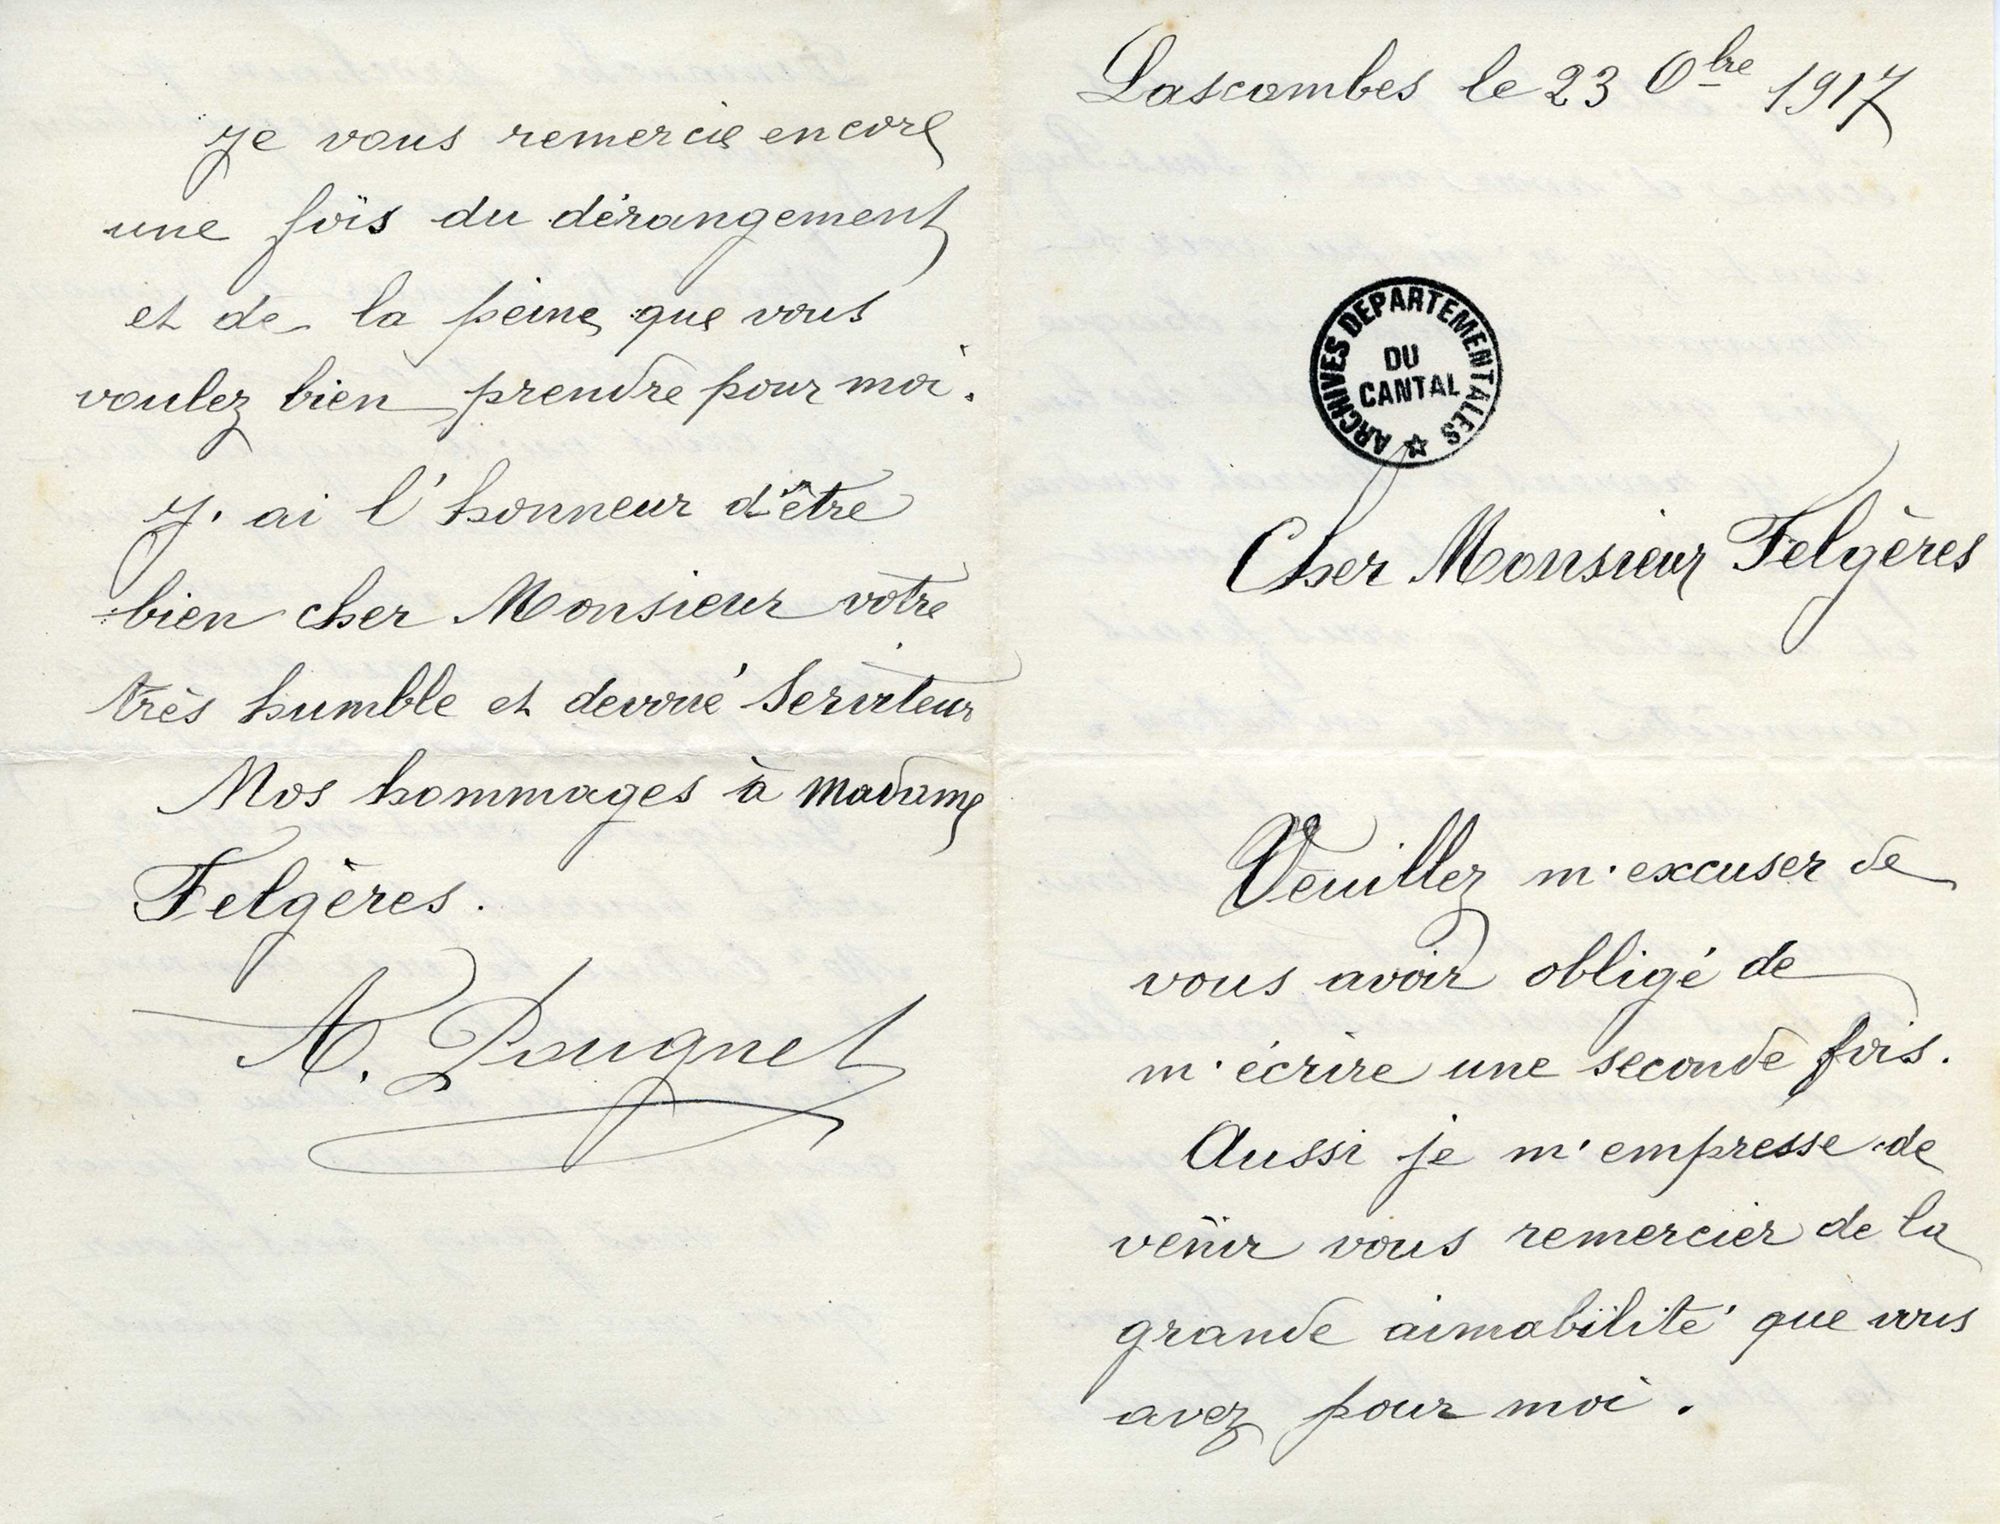 Lascombes le 23 Obre 1917
ARCHIVES DEPARTEMENTALES
DU
CANTAL
Cher Monsieur Felgères
Veuillez m'excuser de
vous avoir obligé de
m'écrire une seconde fois.
Aussi je m'empresse de
venir vous remercier de la
grande aimabilité que vous
avez pour moi.
je vous remercie encore
une fois du dérangement
et de la peine que vous
voulez bien prendre pour moi.
J'ai l'honneur d'être
bien cher Monsieur votre
très humble et devoué Serviteur
Mos hommages à Madame
Felgères.
A. Pougnet